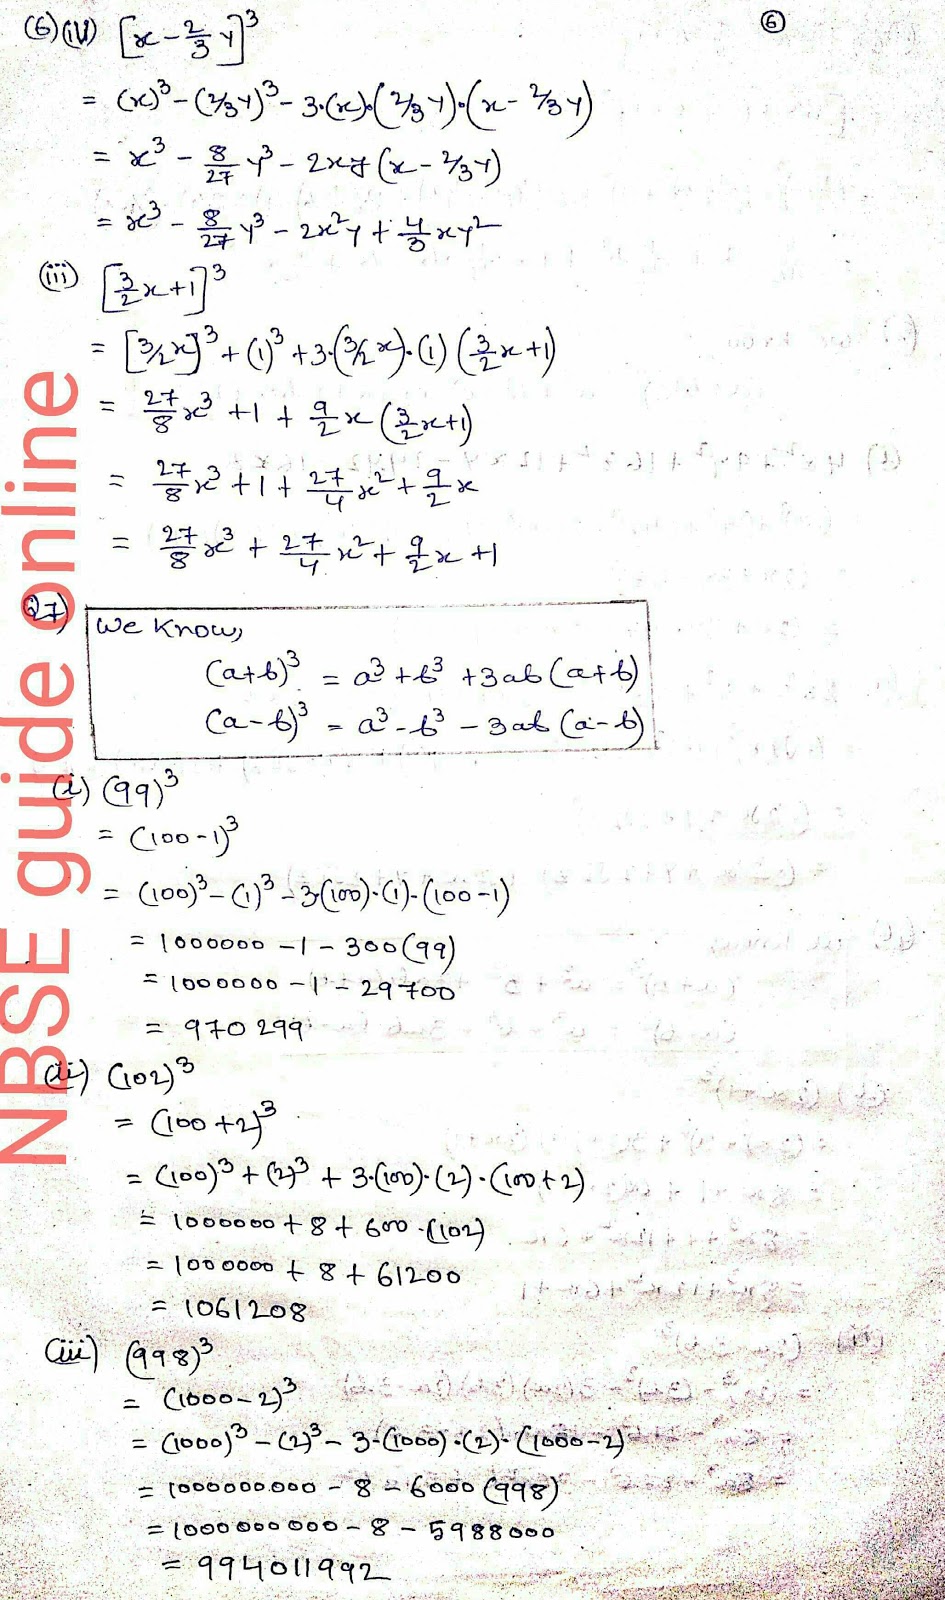 (6)(iv) [x - 2/3 y]³
⑥
= (x)³ - (2/3y)³ - 3·(x)·(2/3y)·(x - 2/3y)
= x³ - 8/27 y³ - 2xy (x - 2/3y)
= x³ - 8/27 y³ - 2x²y + 4/3 xy²
(iii) [3/2 x + 1]³
= [3/2x]³ + (1)³ + 3·(3/2x)·(1) (3/2 x + 1)
= 27/8 x³ + 1 + 9/2 x (3/2 x + 1)
= 27/8 x³ + 1 + 27/4 x² + 9/2 x
= 27/8 x³ + 27/4 x² + 9/2 x + 1
Q7) We know,
(a+b)³ = a³ + b³ + 3ab (a+b)
(a-b)³ = a³ - b³ - 3ab (a-b)
(i) (99)³
= (100-1)³
= (100)³ - (1)³ - 3·(100)·(1)·(100-1)
= 1000000 - 1 - 300(99)
= 1000000 - 1 - 29700
= 970299
(ii) (102)³
= (100+2)³
= (100)³ + (2)³ + 3·(100)·(2)·(100+2)
= 1000000 + 8 + 600·(102)
= 1000000 + 8 + 61200
= 1061208
(iii) (998)³
= (1000-2)³
= (1000)³ - (2)³ - 3·(1000)·(2)·(1000-2)
= 1000000000 - 8 - 6000 (998)
= 1000000000 - 8 - 5988000
= 994011992
NBSE guide online